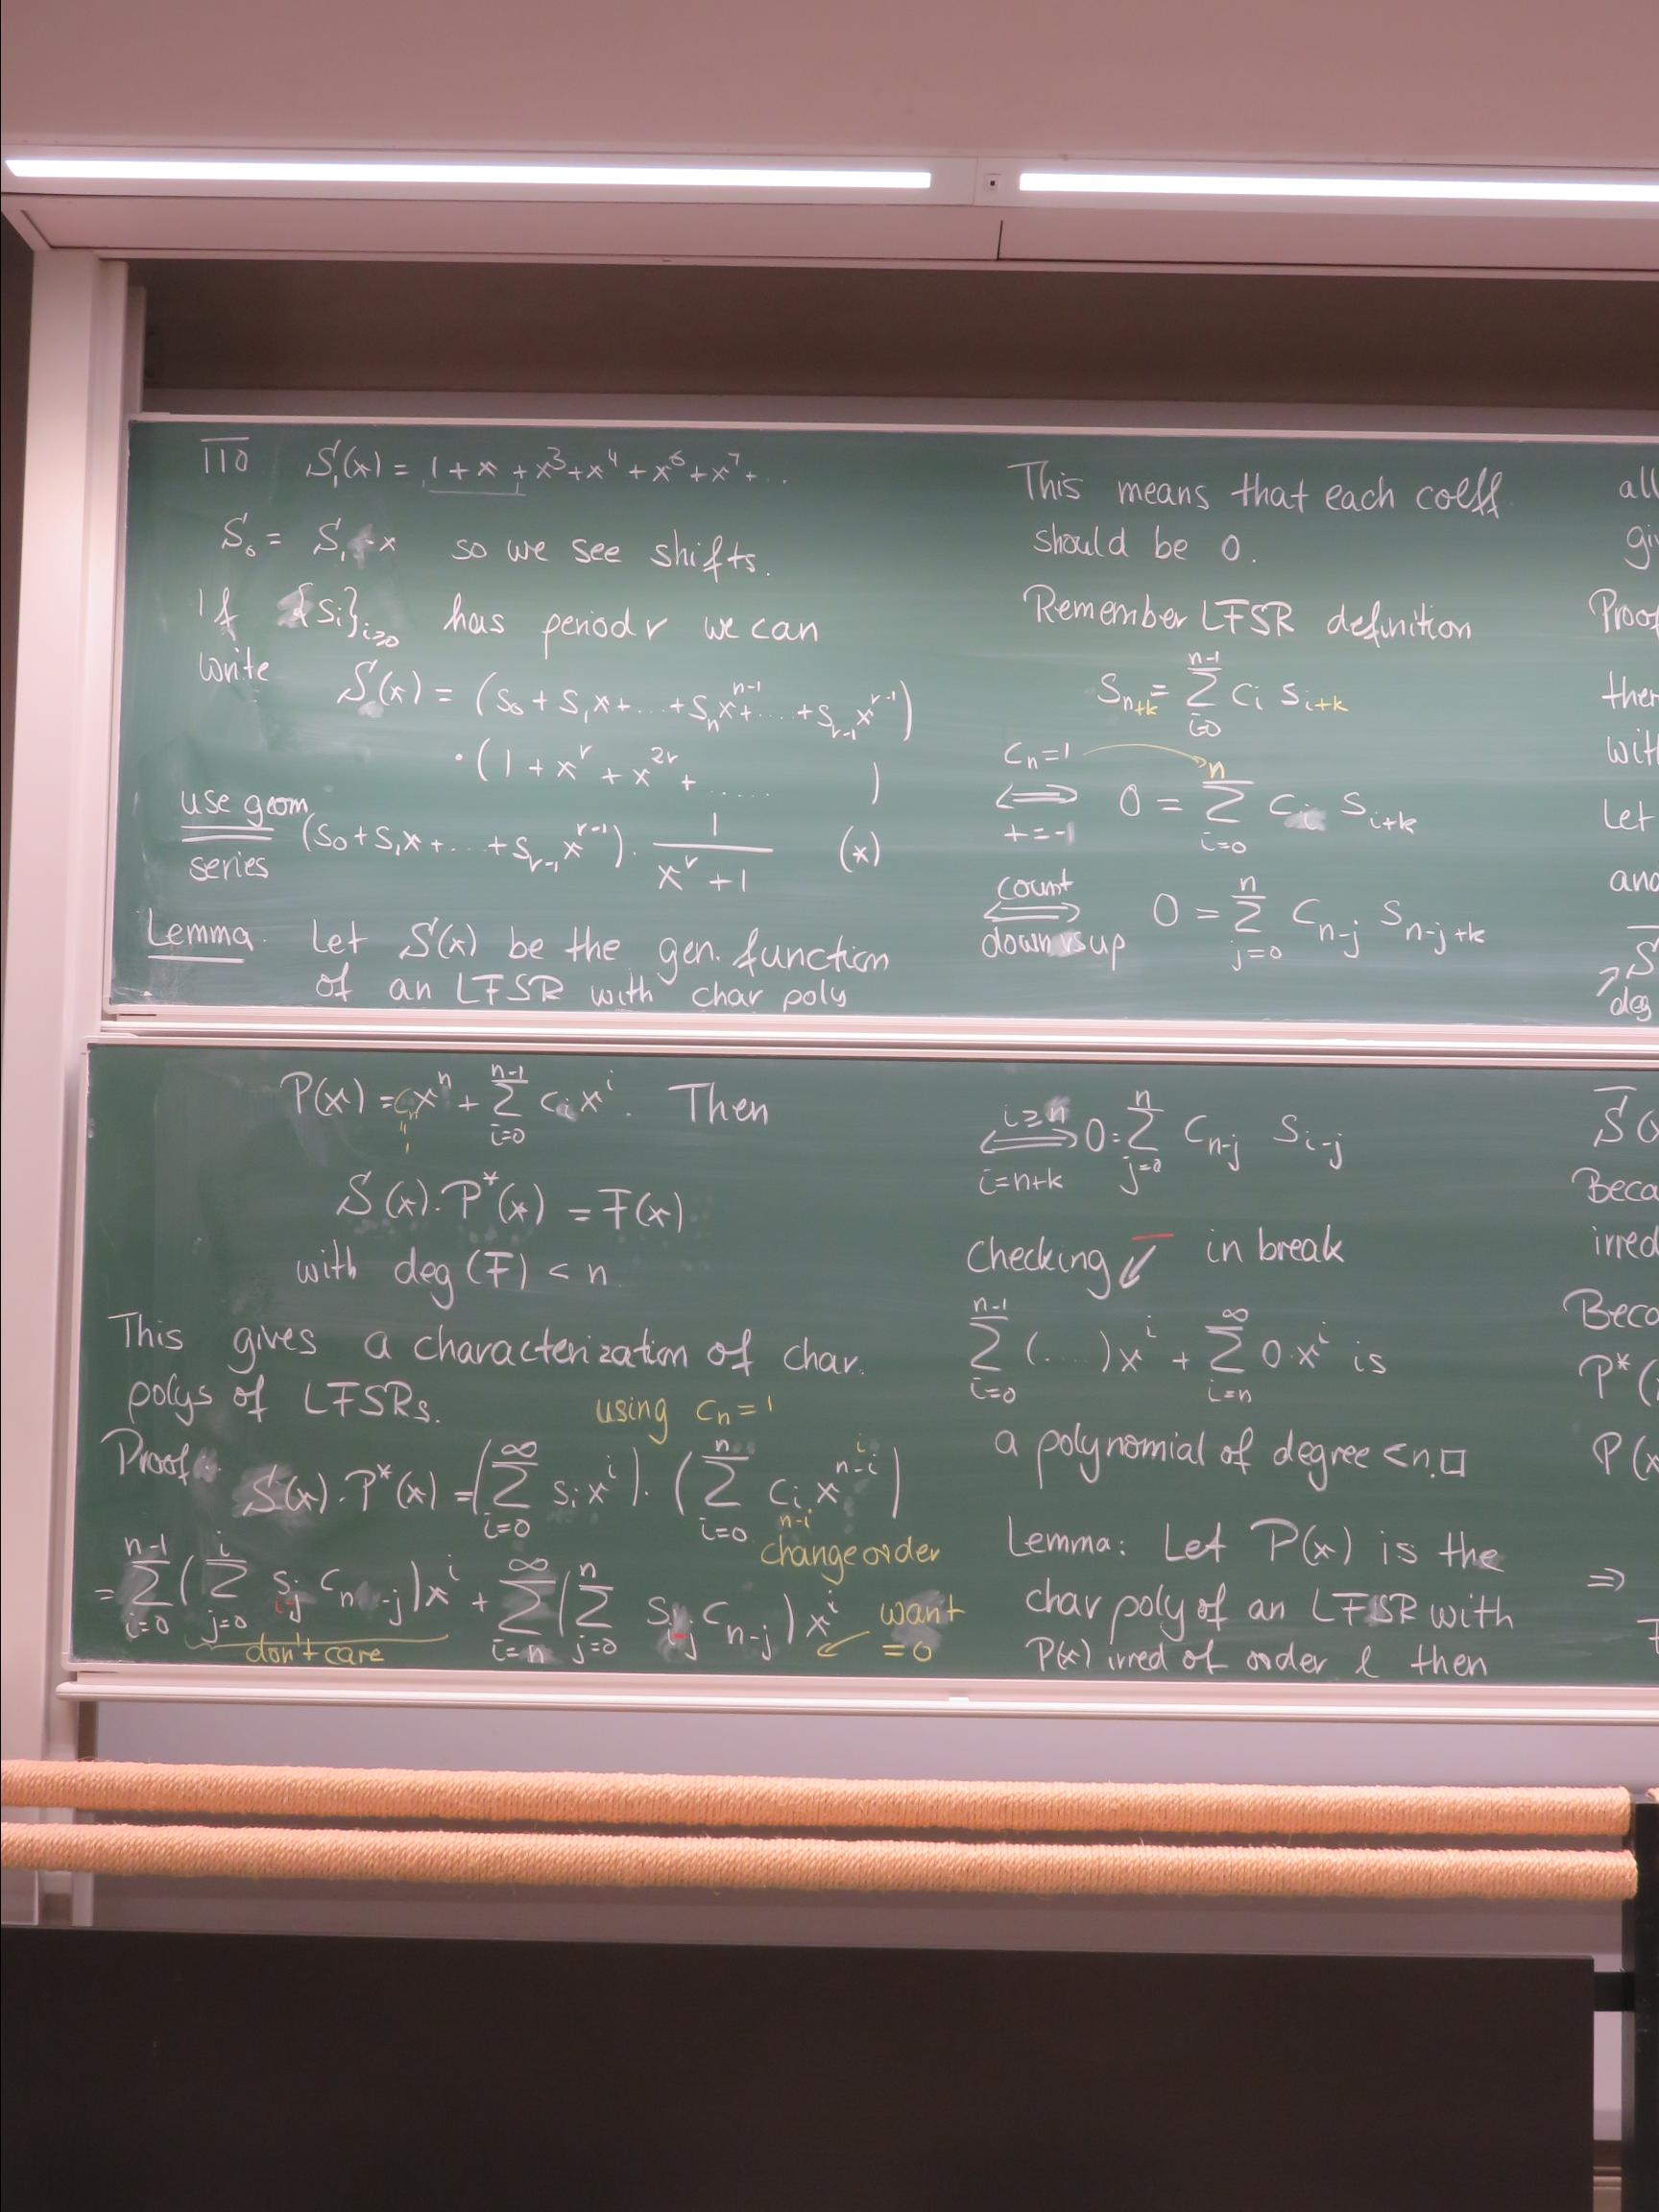 110 S₁(x) = 1 + x + x³ + x⁴ + x⁶ + x⁷ + ...
S₀ = S₁ · x so we see shifts.
If {sᵢ}ᵢ≥₀ has period r we can
write S(x) = (s₀ + s₁x + ... + sₙxⁿ⁻¹ + ... + sᵣ₋₁xʳ⁻¹)
· (1 + xʳ + x²ʳ + ...... )
use geom series = (s₀ + s₁x + ... + sᵣ₋₁xʳ⁻¹) · 1/(xʳ + 1) (*)
Lemma. Let S(x) be the gen. function
of an LFSR with char poly
P(x) = cₙxⁿ + Σ_{i=0}^{n-1} cᵢxⁱ. Then
" 1
S(x) · P*(x) = F(x)
with deg (F) < n
This gives a characterization of char.
polys of LFSRs.
using cₙ = 1
Proof: S(x) · P*(x) = (Σ_{i=0}^{∞} sᵢxⁱ) · (Σ_{i=0}^{n} cᵢ xⁿ⁻ⁱ)
n-i i
change order
= Σ_{i=0}^{n-1} (Σ_{j=0}^{i} s_{i-j} c_{n-j}) xⁱ + Σ_{i=n}^{∞} (Σ_{j=0}^{n} s_{i-j} c_{n-j}) xⁱ want = 0
don't care
This means that each coeff
should be 0.
Remember LFSR definition
S_{n+k} = Σ_{i=0}^{n-1} cᵢ s_{i+k}
cₙ=1 ⟺ +=-1 0 = Σ_{i=0}^{n} cᵢ s_{i+k}
count ⟺ down vs up 0 = Σ_{j=0}^{n} c_{n-j} s_{n-j+k}
i≥n ⟺ i=n+k 0 = Σ_{j=0}^{n} c_{n-j} s_{i-j}
Checking ↙ in break
Σ_{i=0}^{n-1} (....) xⁱ + Σ_{i=n}^{∞} 0·xⁱ is
a polynomial of degree < n. □
Lemma: Let P(x) is the
char poly of an LFSR with
P(x) irred of order l then
all
Proof
with
Let
deg
P*(
P(x
⇒